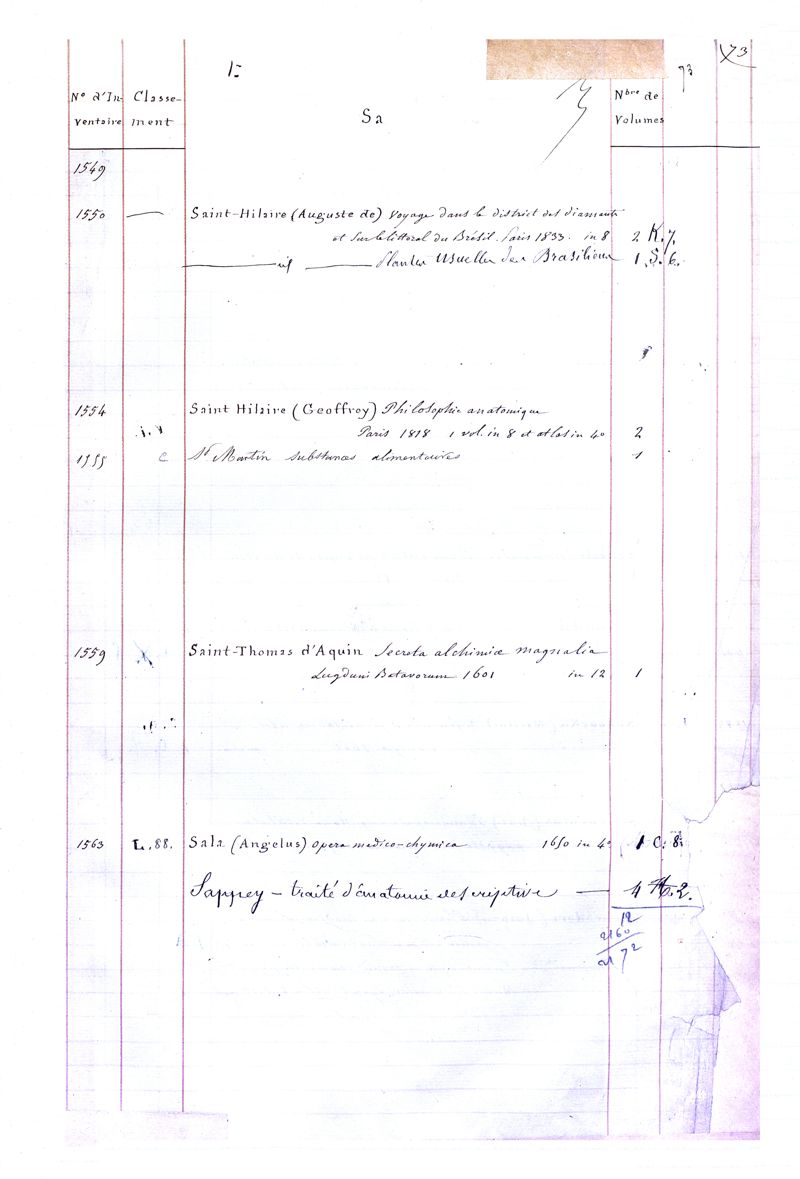 73
73
Nº d'Inventaire Classement Sa Nbre de Volumes
1549
1550 Saint-Hilaire (Auguste de) Voyage dans le district des diamants
et sur le littoral du Brésil. Paris 1833. in 8 2 K. 7.
Plantes usuelles des Brasiliens 1 S. 6.
1554 Saint Hilaire (Geoffroy) Philosophie anatomique
Paris 1818 1 vol. in 8 et atlas in 4º 2
1555 C St Martin substances alimentaires 1
1559 Saint-Thomas d'Aquin Secreta alchimiæ magnalia
Lugduni Batavorum 1601 in 12 1
1563 L. 88. Sala (Angelus) Opera medico-chymica 1650 in 4º 1 C. 8.
Sappey – traité d'anatomie descriptive — 4 2.
12
2160
2172